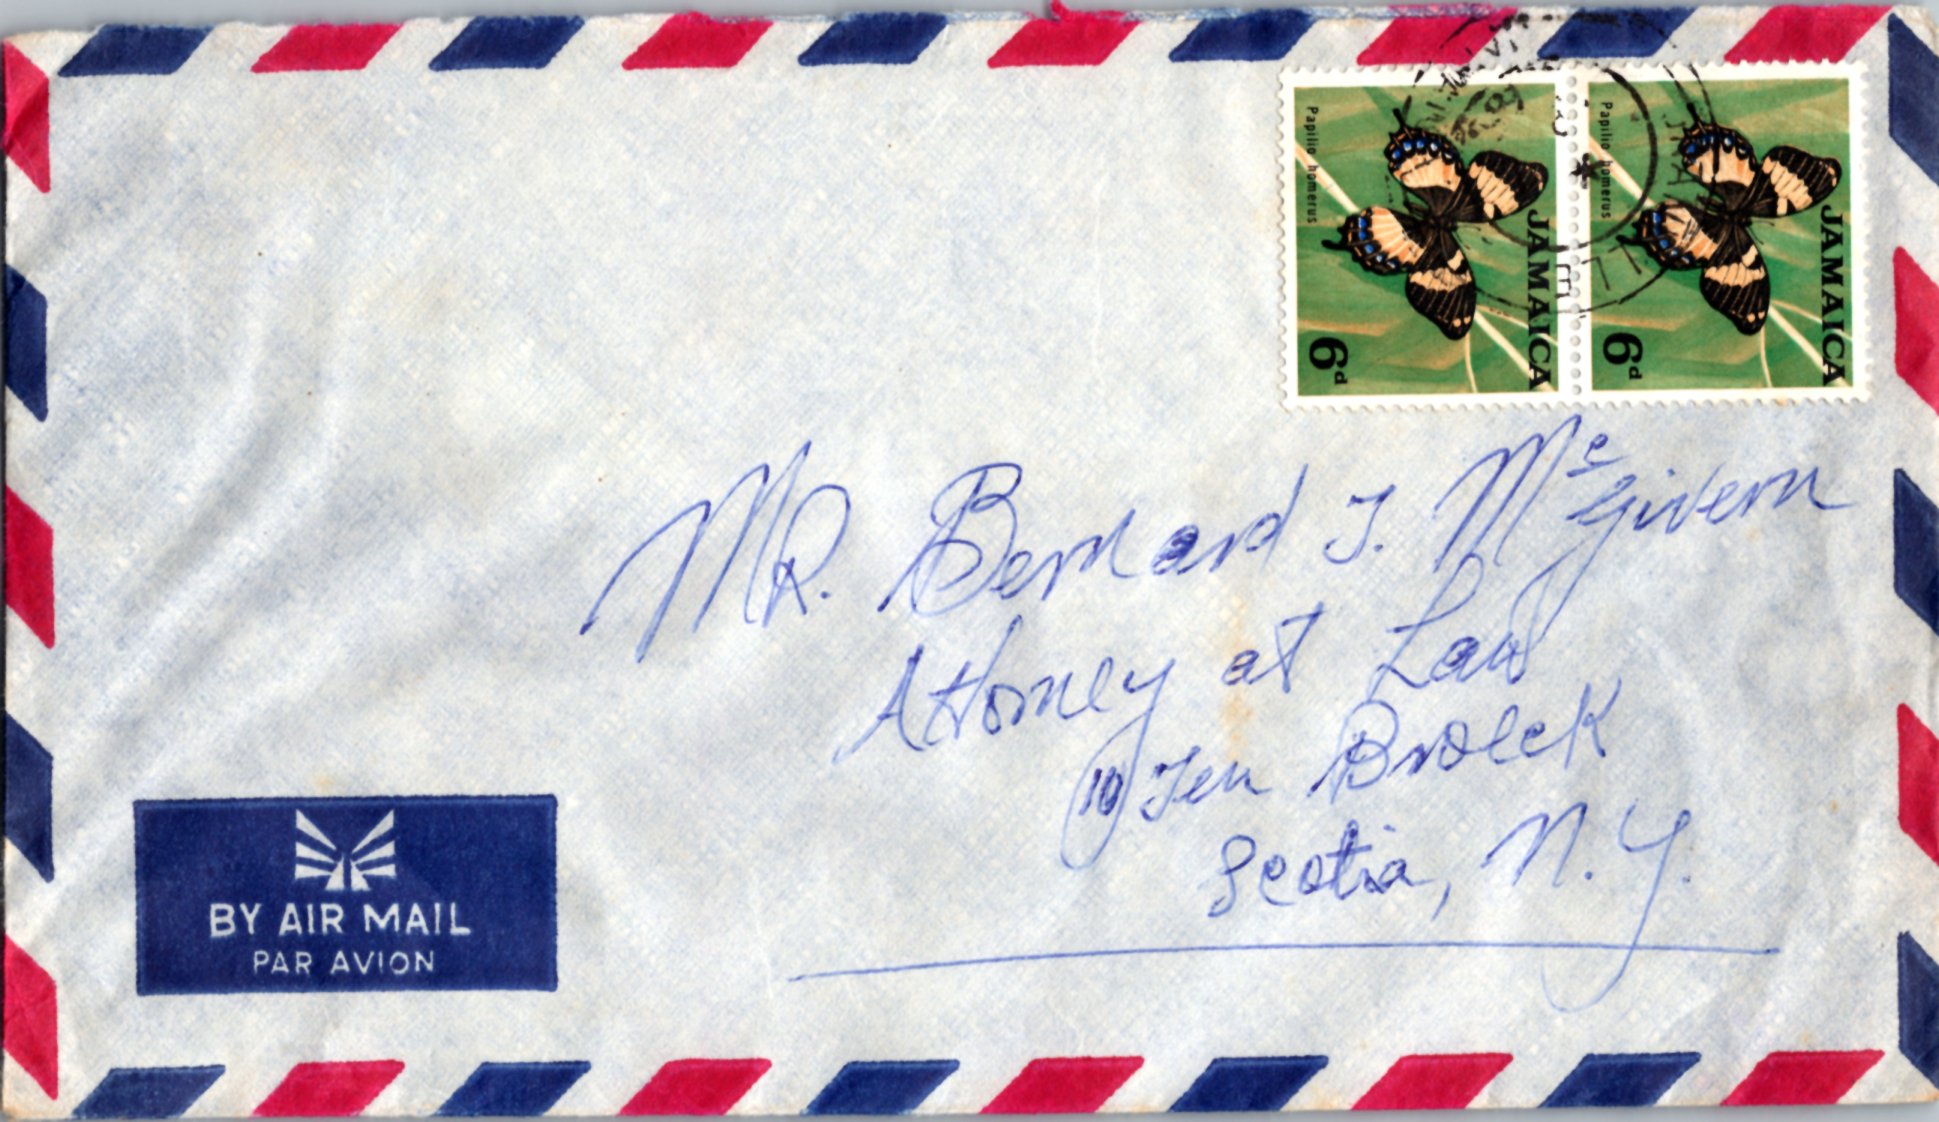 Papilio homerus
JAMAICA
6d
Papilio homerus
JAMAICA
6d
Mr. Bernard J. McGivern
Attorney at Law
10 Ten Broeck
Scotia, N.Y.
BY AIR MAIL
PAR AVION